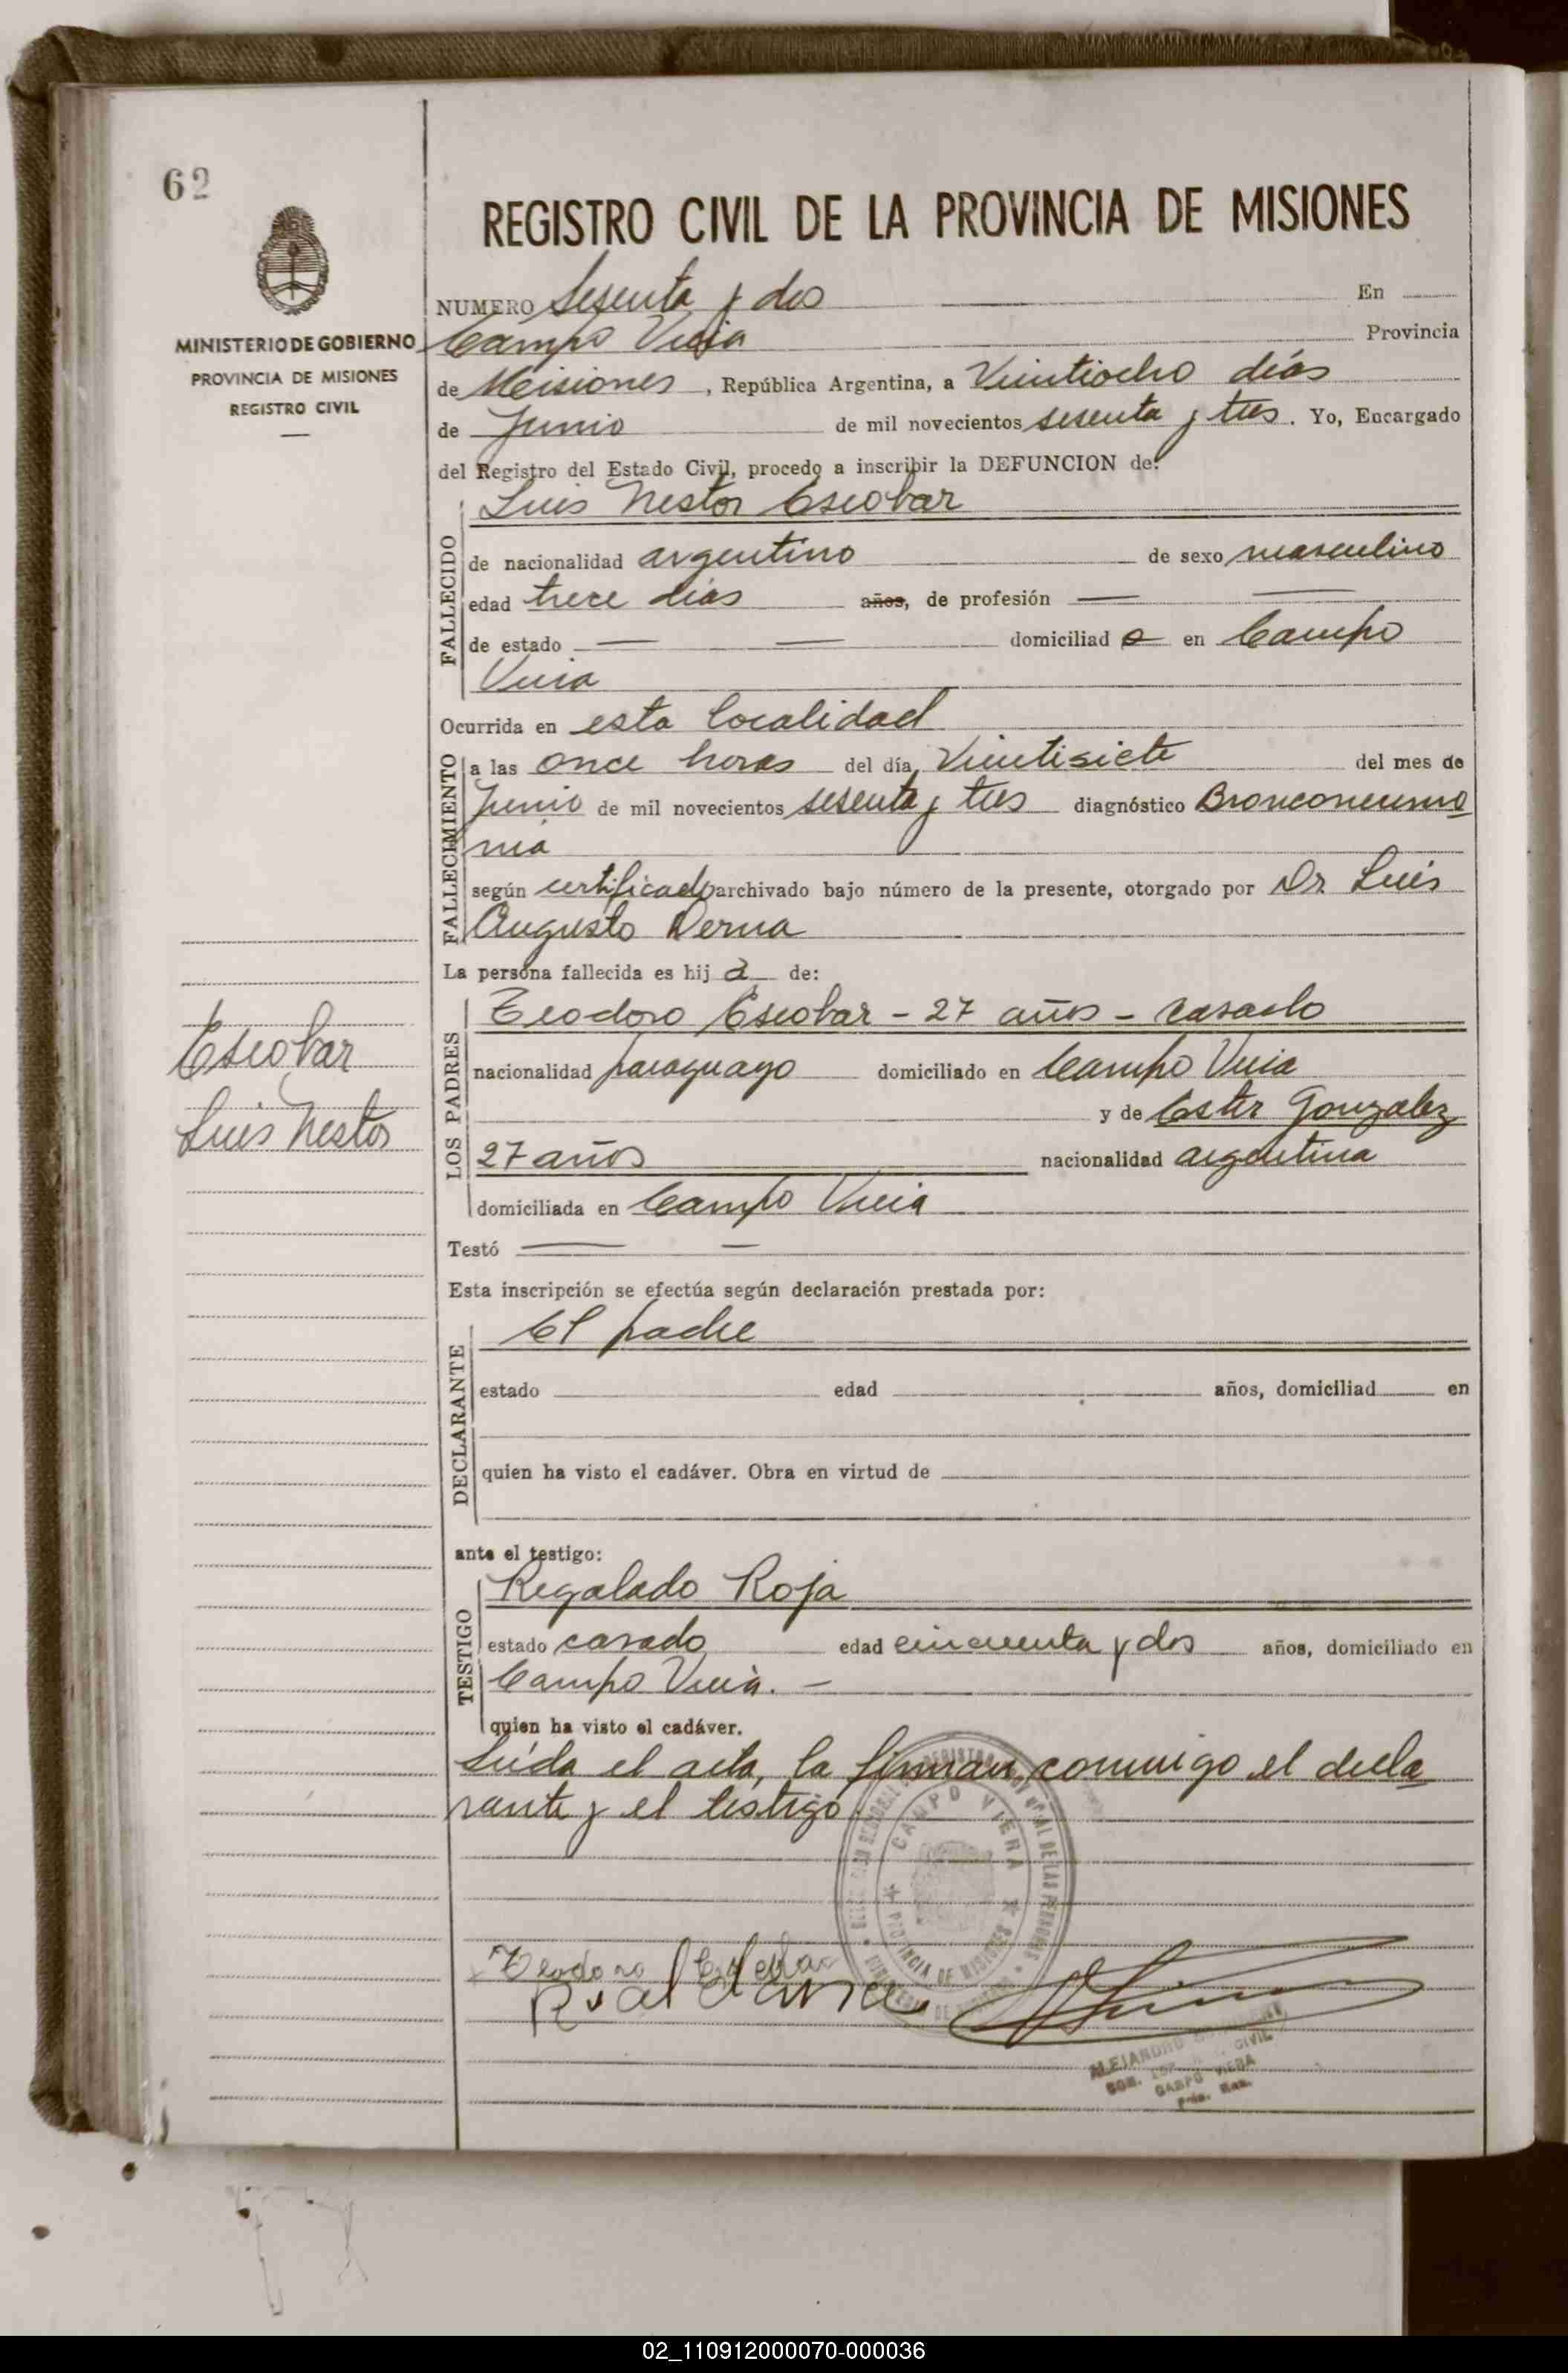 62
MINISTERIO DE GOBIERNO
PROVINCIA DE MISIONES
REGISTRO CIVIL
REGISTRO CIVIL DE LA PROVINCIA DE MISIONES
NUMERO Sesenta y dos En
Campo Viera Provincia
de Misiones, República Argentina, a Veintiocho días
de Junio de mil novecientos sesenta y tres. Yo, Encargado
del Registro del Estado Civil, procedo a inscribir la DEFUNCION de:
FALLECIDO
Luis Nestor Escobar
de nacionalidad argentino de sexo masculino
edad trece días años, de profesión —— ——
de estado —— —— domiciliad o en Campo
Viera
Ocurrida en esta localidad
FALLECIMIENTO
a las once horas del día Veintisiete del mes de
Junio de mil novecientos sesenta y tres diagnóstico Bronconeumo
nia
según certificado archivado bajo número de la presente, otorgado por Dr Luis
Augusto Derna
La persona fallecida es hij o de:
LOS PADRES
Teodoro Escobar - 27 años - casado
nacionalidad paraguayo domiciliado en Campo Viera
y de Ester Gonzalez
27 años nacionalidad argentina
domiciliada en Campo Viera
Testó —— —
Esta inscripción se efectúa según declaración prestada por:
DECLARANTE
El padre
estado edad años, domiciliad en
quien ha visto el cadáver. Obra en virtud de
ante el testigo:
TESTIGO
Regalado Roja
estado casado edad cincuenta y dos años, domiciliado en
Campo Viera. —
quien ha visto el cadáver.
Leída el acta, la firman conmigo el decla
rante y el testigo.
Escobar
Luis Nestor
CAMPO VIERA
PROVINCIA DE MISIONES
Teodoro Escobar
ALEJANDRO
CIVIL
CAMPO VIERA
02_110912000070-000036